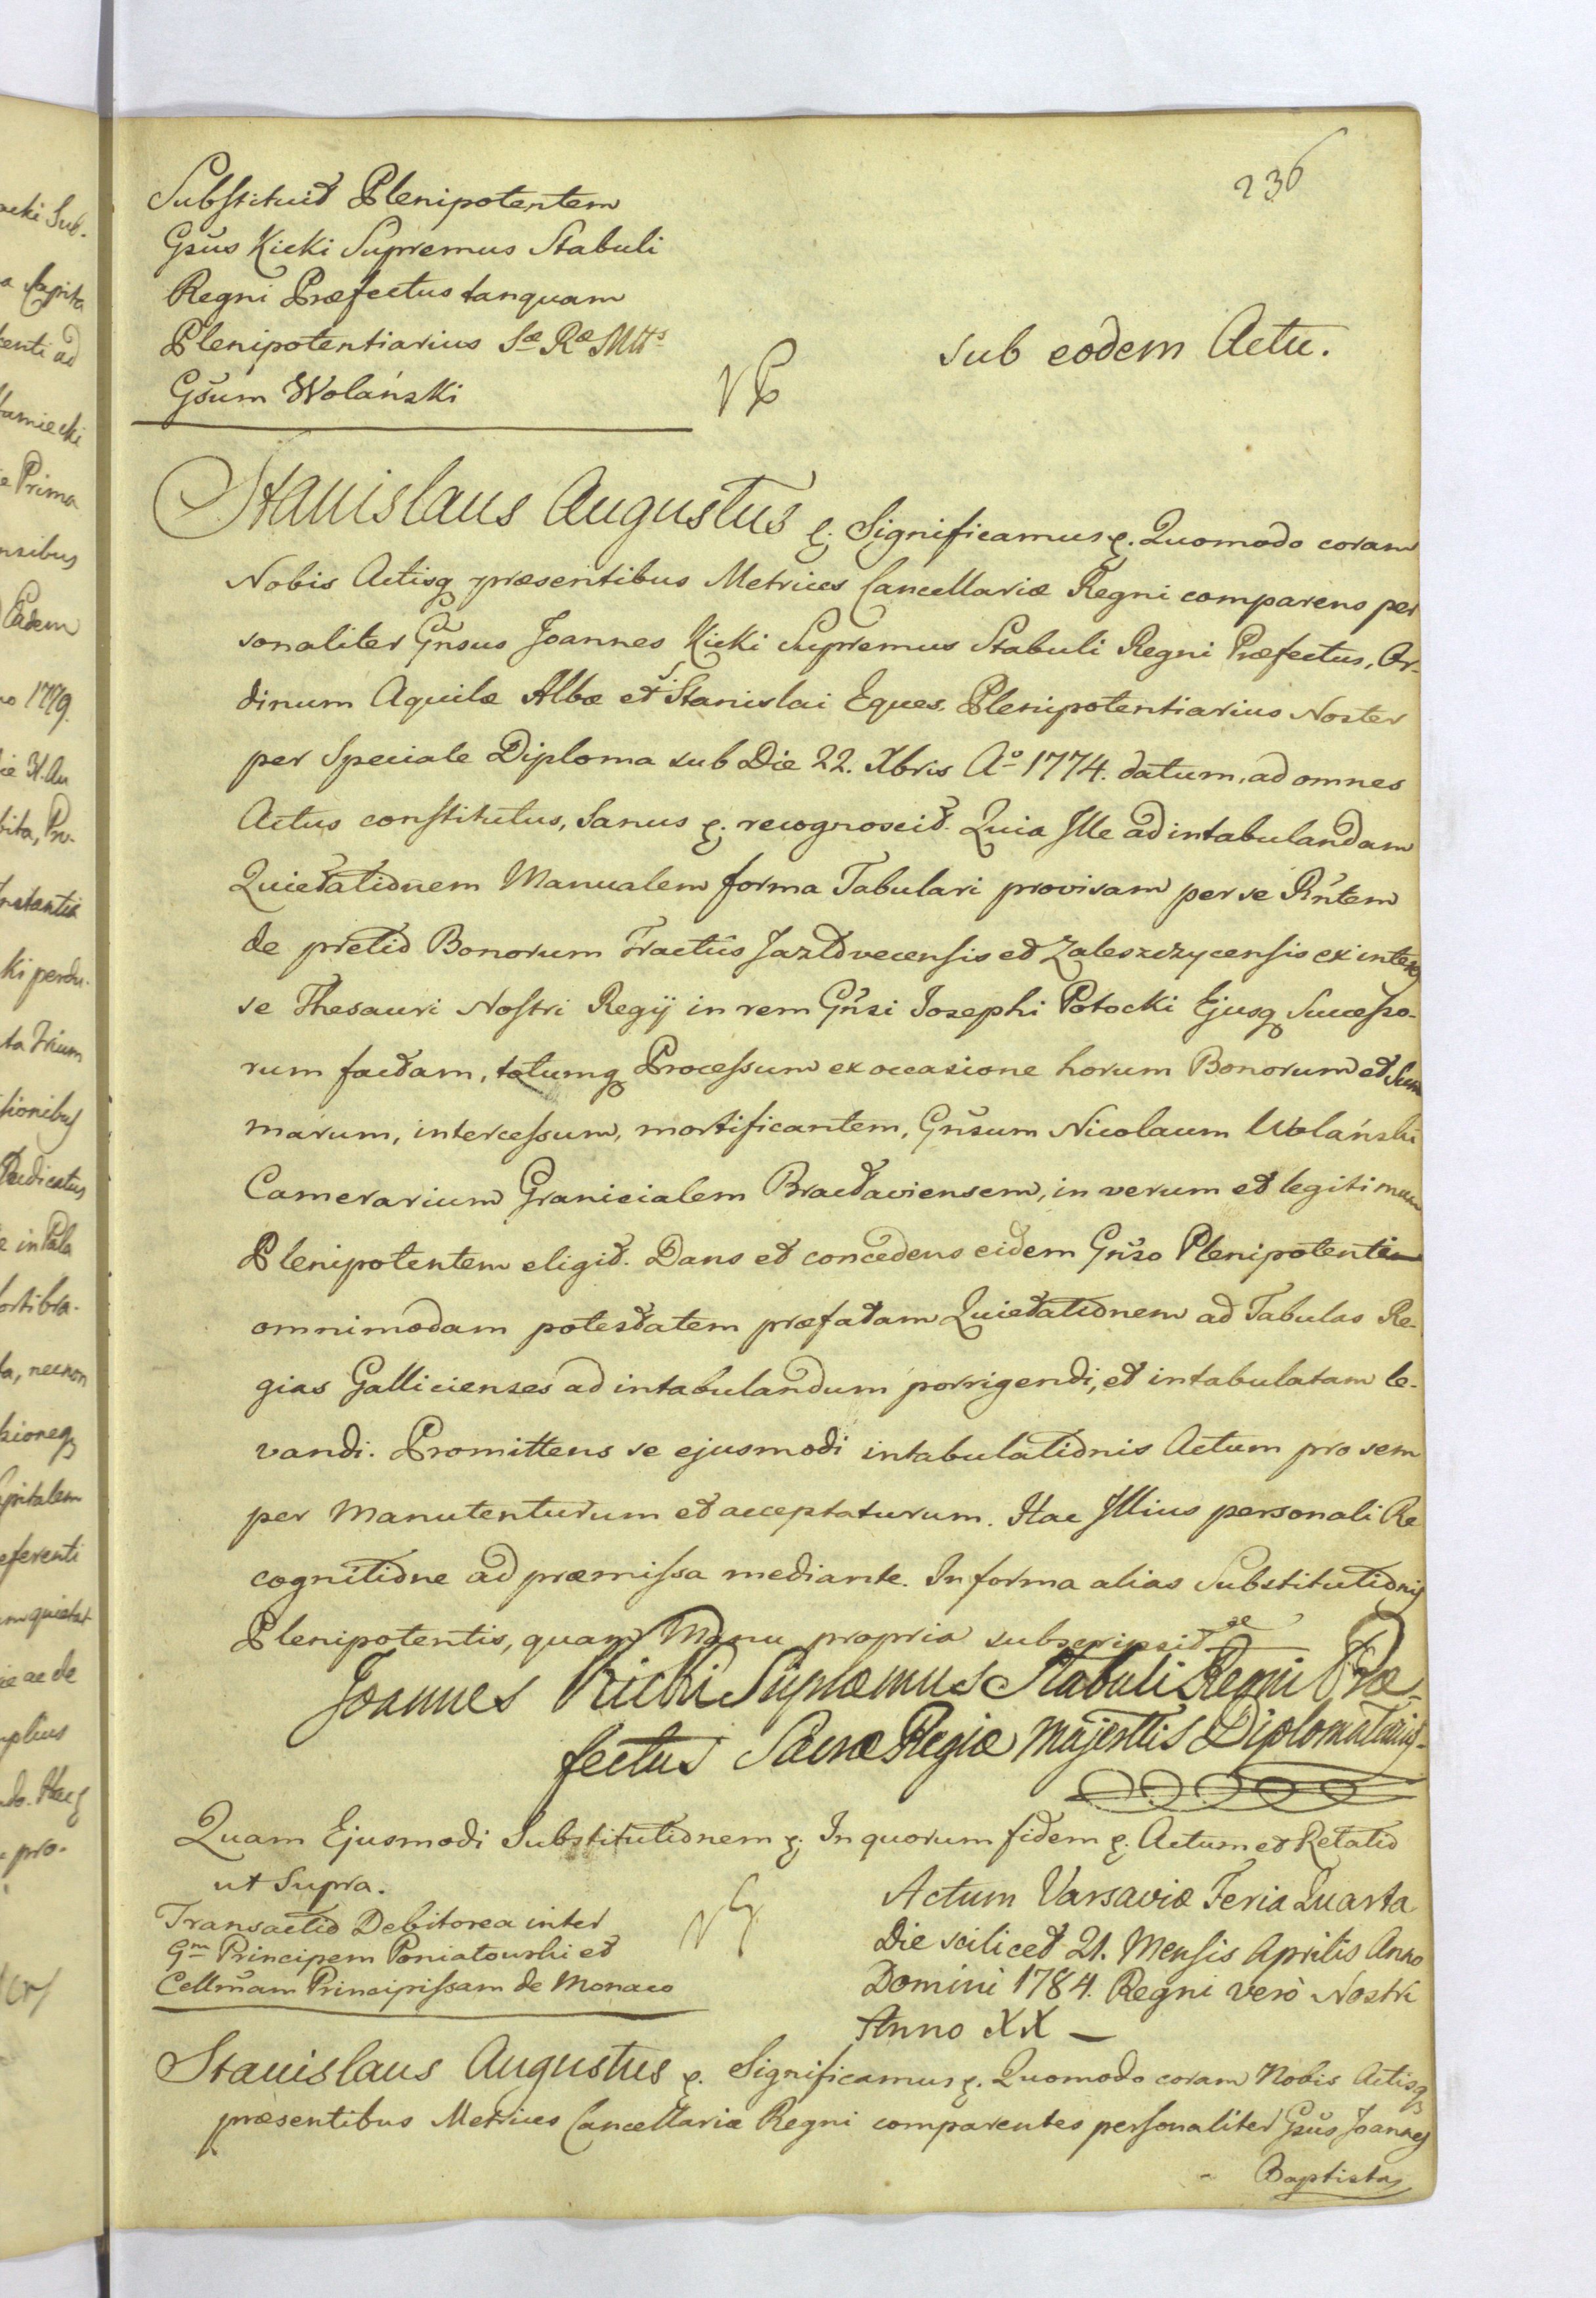 236
Substituit Plenipotentem
Gsus Kicki Supremus Stabuli
Regni Præfectus tanquam
Plenipotentiarius Sæ Ræ Mtts
Gsum Wolański
sub eodem Actu.
Stanislaus Augustus &. Significamus &. Quomodo coram
Nobis Actisq præsentibus Metrices Cancellariæ Regni comparens per
sonaliter Gnsus Joannes Kicki Supremus Stabuli Regni Præfectus, Or-
dinum Aquilæ Albæ et S. Stanislai Eques, Plenipotentiarius Noster
per Speciale Diploma sub Die 22. Xbris Ao 1774. datum, ad omnes
Actus constitutus, Sanus &. recognoscit. Quia Ille ad intabulandam
Quietationem Manualem forma Tabulari provisam per se Rntem
de pretio Bonorum Tractûs Jazlovecensis et Zaleszczycensis ex interes
se Thesauri Nostri Regij in rem Gnsi Josephi Potocki Ejusq Successo-
rum factam, totumq Processum ex occasione horum Bonorum et Sum
marum, intercessum, mortificantem, Gnsum Nicolaum Wolański
Camerarium Granicialem Braclaviensem, in verum et legitimum
Plenipotentem eligit. Dans et concedens eidem Gnso Plenipotenti
omnimodam potestatem præfatam Quietationem ad Tabulas Re-
gias Gallicienses ad intabulandum porrigendi, et intabulatam le-
vandi. Promittens se ejusmodi intabulationis Actum pro sem
per Manutenturum et acceptaturum. Hac Illius personali Re
cognitione ad præmissa mediante. In forma alias Substitutionis
Plenipotentis, quam Manu propria subscripsit
Joannes Kicki Supræmus Stabuli Regni Præ-
fectus Sacræ Regiæ Majesttis Diplomatarius
Quam Ejusmodi Substitutionem &. In quorum fidem &. Actum et Relatio
ut Supra.
Transactio Debitorea inter
Gm Principem Poniatowski et
Cellmam Principissam de Monaco
Actum Varsaviæ Feria Quarta
Die scilicet 21. Mensis Aprilis Anno
Domini 1784. Regni verò Nostri
Anno XX
Stanislaus Augustus &. Significamus &. Quomodo coram Nobis Actisq
præsentibus Metrices Cancellariæ Regni comparentes personaliter Gsus Joannes
Baptista